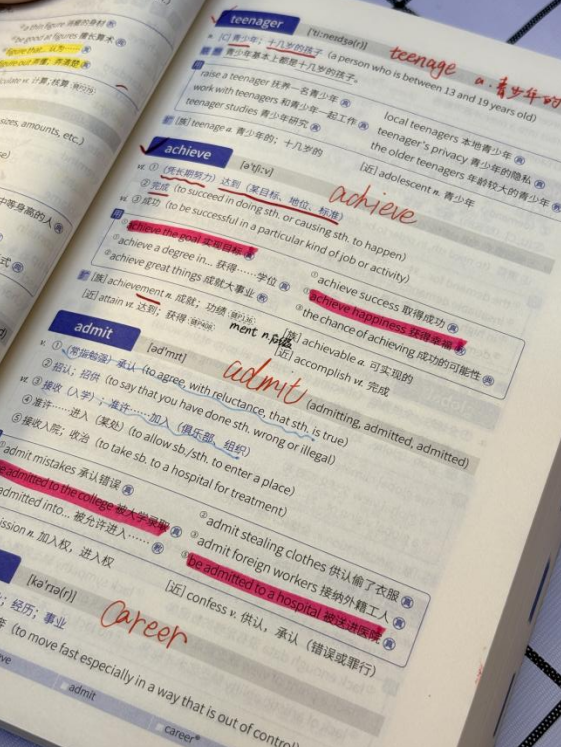 figure that... 认为……
figure out 弄懂，弄清楚
be good at figures 擅长算术
sizes, amounts, etc.)
teenager [ˈtiːneɪdʒə(r)] teenage a. 青少年的
n. [C] 青少年；十几岁的孩子 (a person who is between 13 and 19 years old)
青少年基本上都是十几岁的孩子。
raise a teenager 抚养一名青少年 真
local teenagers 本地青少年 真
work with teenagers 和青少年一起工作 真
teenager's privacy 青少年的隐私 真
teenager studies 青少年研究 真
the older teenagers 年龄较大的青少年 真
[族] teenage a. 青少年的；十几岁的
[近] adolescent n. 青少年
achieve [əˈtʃiːv] achieve
vt. ①（凭长期努力）达到（某目标、地位、标准）
②完成 (to succeed in doing sth. or causing sth. to happen)
vi. ③成功 (to be successful in a particular kind of job or activity)
①achieve the goal 实现目标 真
①achieve success 取得成功 真
①achieve a degree in... 获得……学位 真
①achieve happiness 获得幸福 真
②achieve great things 成就大事业 真
③the chance of achieving 成功的可能性 真
[族] achievement n. 成就；功绩
ment n.后缀
[族] achievable a. 可实现的
[近] attain vt. 达到；获得
[近] accomplish vt. 完成
admit [ədˈmɪt] admit (admitting, admitted, admitted)
v. ①（常指勉强）承认 (to agree, with reluctance, that sth. is true)
②招认；招供 (to say that you have done sth. wrong or illegal)
vt. ③接收（入学）；准许……加入（俱乐部、组织）
④准许……进入（某处）(to allow sb./sth. to enter a place)
⑤接收入院；收治 (to take sb. to a hospital for treatment)
①admit mistakes 承认错误 真
②admit stealing clothes 供认偷了衣服 真
be admitted to the college 被大学录取 真
③admit foreign workers 接纳外籍工人 真
admitted into... 被允许进入…… 真
⑤be admitted to a hospital 被送进医院 真
ission n. 加入权，进入权
[近] confess v. 供认，承认（错误或罪行）
[kəˈrɪə(r)] career
；经历；事业
(to move fast especially in a way that is out of control)
admit
career